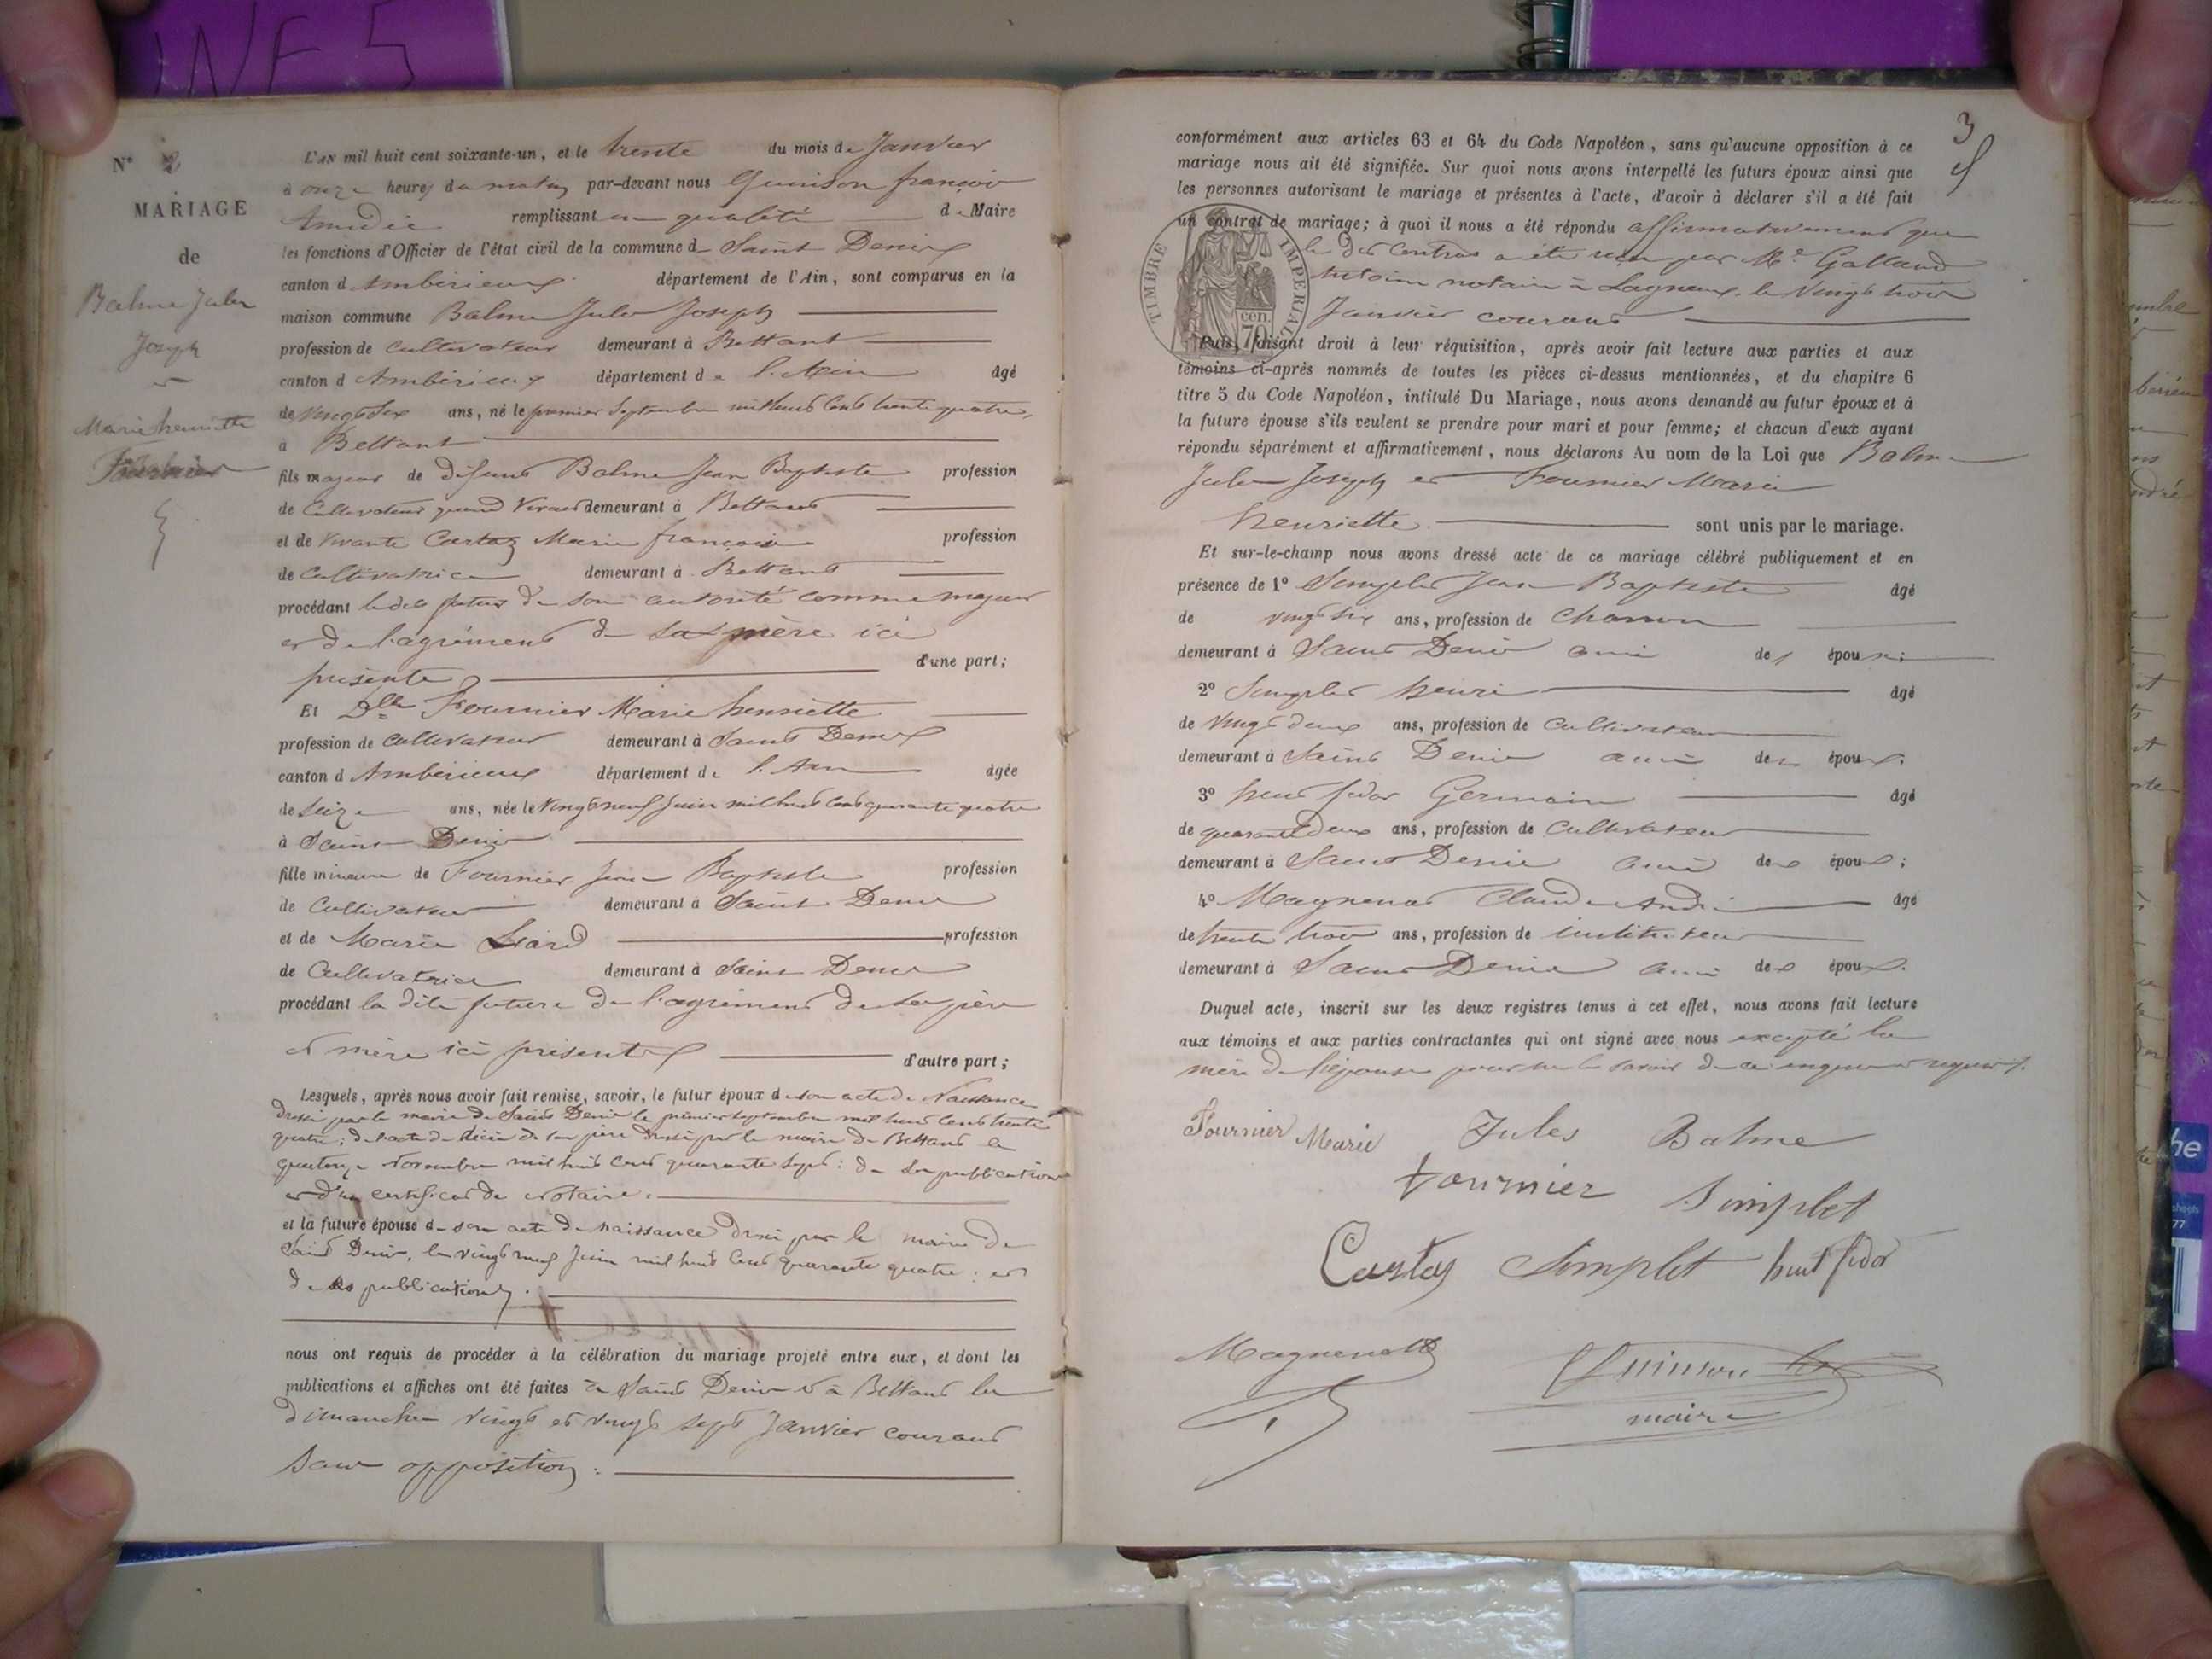 INF 5
N° 2
MARIAGE
de
Balme Jules
Joseph
et
Marie henriette
Fournier
L'AN mil huit cent soixante-un, et le trente du mois de Janvier
à onze heures du matin par-devant nous Quinson françois
Amédée remplissant en qualité de Maire
les fonctions d'Officier de l'état civil de la commune de Saint Denis
canton d'Ambérieux département de l'Ain, sont comparus en la
maison commune Balme Jules Joseph
profession de cultivateur demeurant à Bettant
canton d'Ambérieux département de l'Ain âgé
de vingt six ans, né le premier Septembre mil huit cent trente quatre,
à Bettant
fils majeur de défunt Balme Jean Baptiste profession
de Cultivateur quand vivait demeurant à Bettant
et de vivante Cartaz Marie françoise profession
de Cultivatrice demeurant à Bettant
procédant le dit futur de son autorité comme majeur
et de l'agrément de sa mère ici
présente d'une part;
Et Dlle Fournier Marie henriette
profession de cultivateur demeurant à Saint Denis
canton d'Ambérieux département de l'Ain âgée
de seize ans, née le vingt neuf Juin mil huit cent quarante quatre
à Saint Denis
fille mineure de Fournier Jean Baptiste profession
de Cultivateur demeurant à Saint Denis
et de Marie Liard profession
de Cultivatrice demeurant à Saint Denis
procédant la dite future de l'agrément de ses père
et mère ici présents d'autre part;
Lesquels, après nous avoir fait remise, savoir, le futur époux de son acte de Naissance
dressé par le maire de Saint Denis le premier septembre mil huit cent trente
quatre; de l'acte de décès de son père dressé par le maire de Bettant le
quatorze Novembre mil huit cent quarante sept: de ses publications
et d'un certificat de notaire.
et la future épouse de son acte de naissance dressé par le maire de
Saint Denis, le vingt neuf Juin mil huit cent quarante quatre: et
de ses publications.
nous ont requis de procéder à la célébration du mariage projeté entre eux, et dont les
publications et affiches ont été faites à Saint Denis et à Bettant les
dimanches vingt et vingt sept Janvier courant
sans opposition:
3
conformément aux articles 63 et 64 du Code Napoléon, sans qu'aucune opposition à ce
mariage nous ait été signifiée. Sur quoi nous avons interpellé les futurs époux ainsi que
les personnes autorisant le mariage et présentes à l'acte, d'avoir à déclarer s'il a été fait
un contrat de mariage; à quoi il nous a été répondu affirmativement que
le dit contrat a été reçu par Me Galland
Antoine notaire à Lagneux, le vingt trois
Janvier courant
TIMBRE IMPÉRIAL
70 cen.
Puis, faisant droit à leur réquisition, après avoir fait lecture aux parties et aux
témoins ci-après nommés de toutes les pièces ci-dessus mentionnées, et du chapitre 6
titre 5 du Code Napoléon, intitulé Du Mariage, nous avons demandé au futur époux et à
la future épouse s'ils veulent se prendre pour mari et pour femme; et chacun d'eux ayant
répondu séparément et affirmativement, nous déclarons Au nom de la Loi que Balme
Jules Joseph et Fournier Marie
henriette sont unis par le mariage.
Et sur-le-champ nous avons dressé acte de ce mariage célébré publiquement et en
présence de 1° Simplet Jean Baptiste âgé
de vingt six ans, profession de Charron
demeurant à Saint Denis ami des époux;
2° Simplet henri âgé
de vingt deux ans, profession de Cultivateur
demeurant à Saint Denis ami des époux.
3° huit fidor Germain âgé
de quarante deux ans, profession de Cultivateur
demeurant à Saint Denis ami des époux;
4° Magnenat Claude André âgé
de trente trois ans, profession de instituteur
demeurant à Saint Denis ami des époux.
Duquel acte, inscrit sur les deux registres tenus à cet effet, nous avons fait lecture
aux témoins et aux parties contractantes qui ont signé avec nous excepté la
mère de l'épouse pour ne le savoir de ce enquise et requise.
Fournier Marie Jules Balme
fournier Simplet
Cartaz Simplet huit fidor
Magnenat Quinson
maire